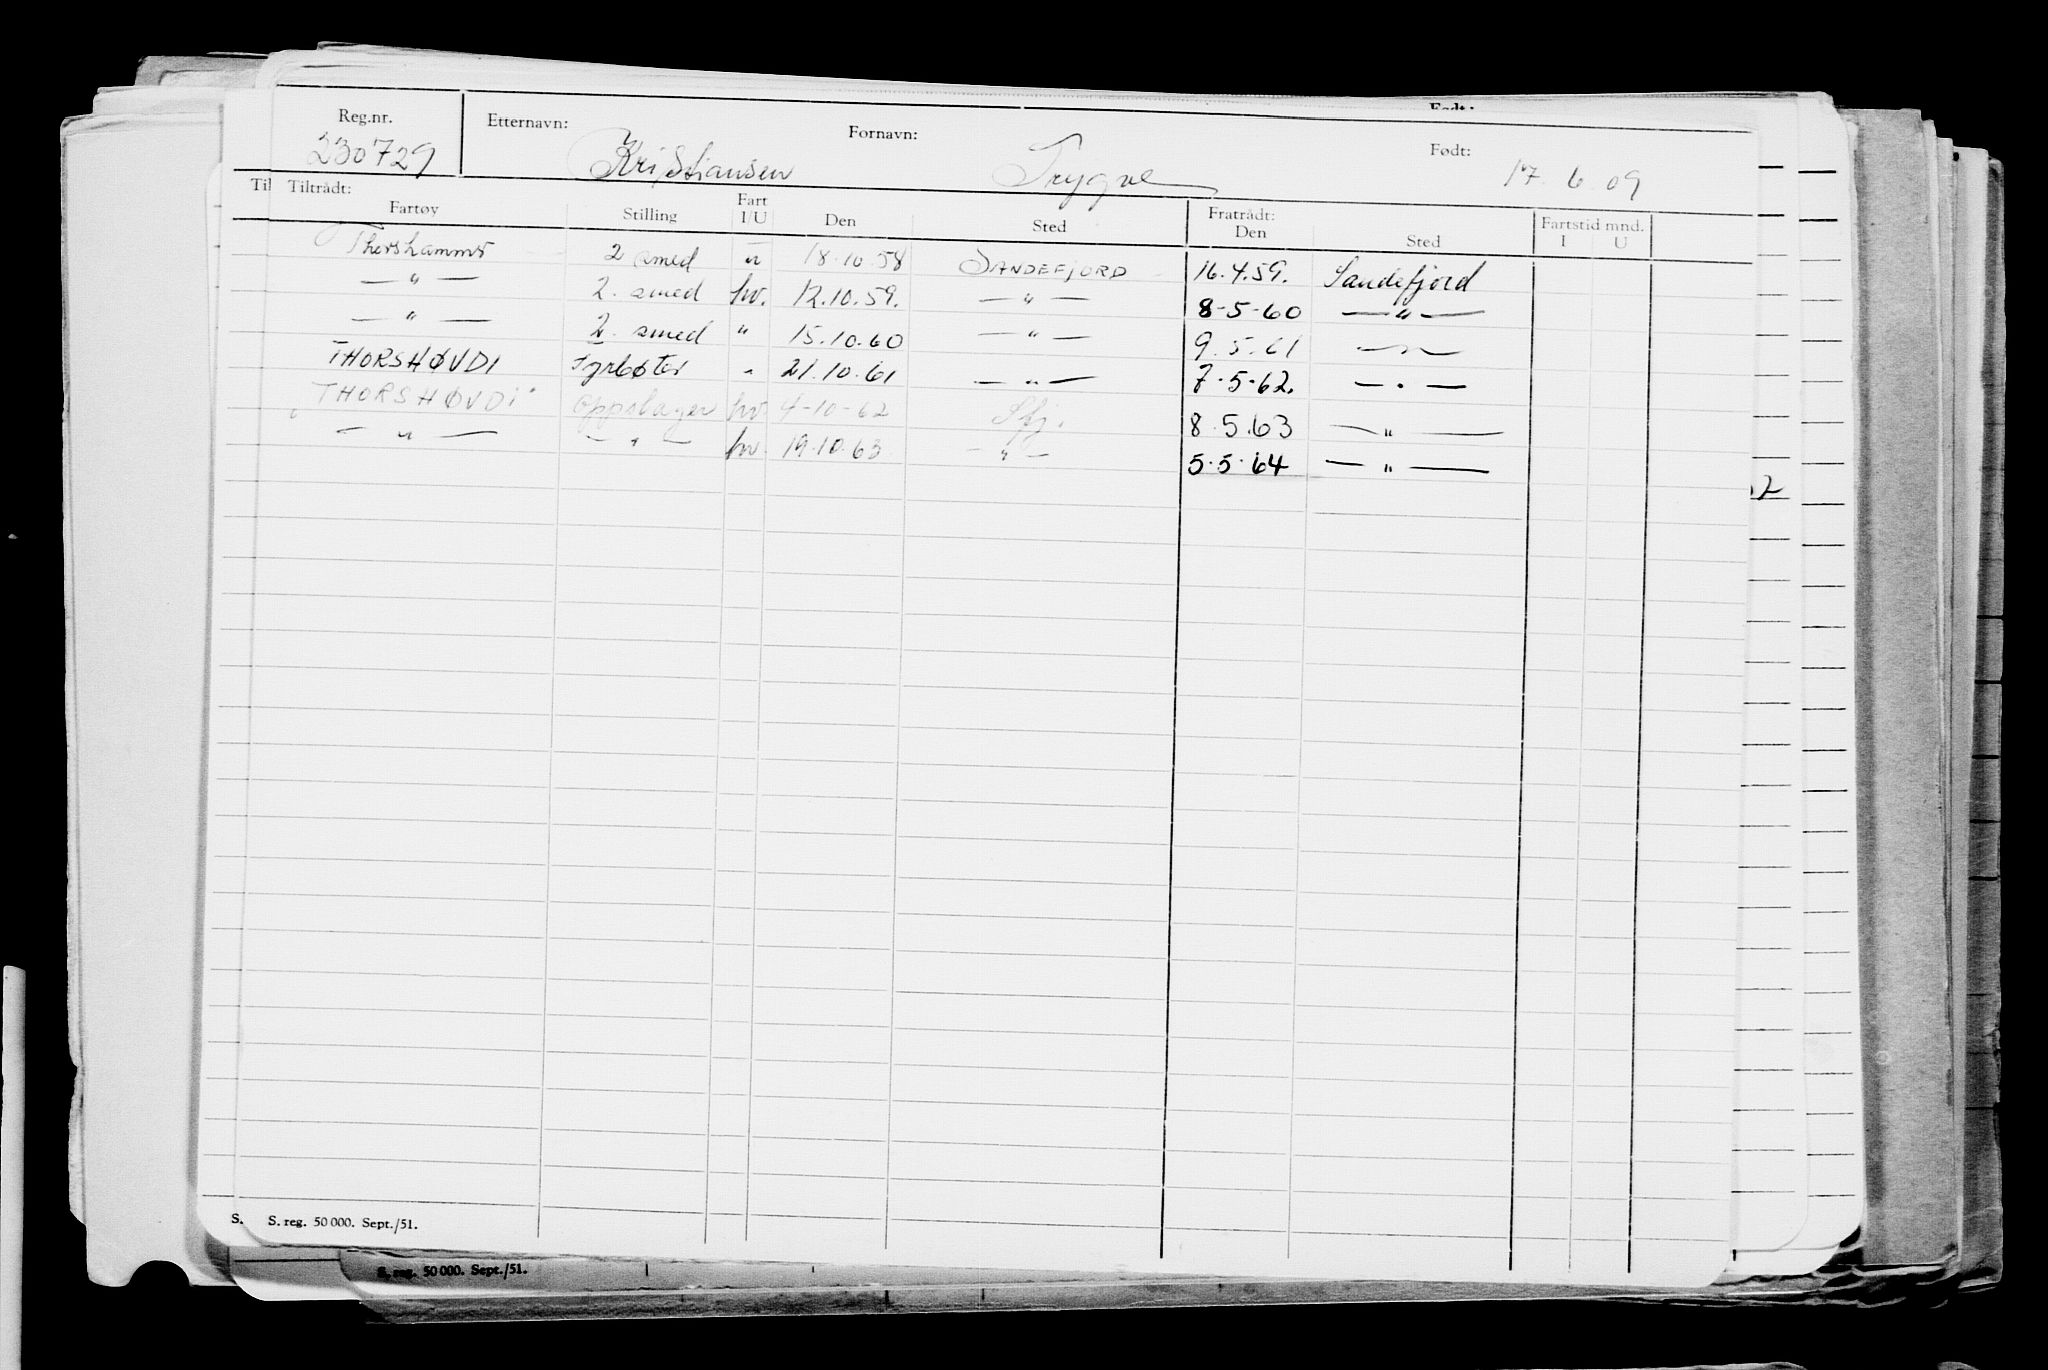 Født:
Reg.nr. Etternavn: Fornavn: Født:
230729 Kristiansen Trygve 17. 6. 09
Til Tiltrådt: Fratrådt: Fartstid mnd.
Fartøy Stilling Fart I/U Den Sted Den Sted I U
Thorshammer 2 smed u 18.10.58 SANDEFJORD 16.4.59. Sandefjord
— " — 2. smed hv. 12.10.59. — " — 8-5-60 — " —
— " — 2. smed " 15.10.60 — " — 9.5.61 — " —
THORSHØVDI Fyrbøter " 21.10.61 — " — 7-5-62. — " —
"THORSHØVDI" oppslager hv. 4-10-62 Sfj. 8.5.63 — " —
— " — — " — hv. 19.10.63 — " — 5.5.64 — " —
2
S. S. reg. 50 000. Sept./51.
S. reg. 50 000. Sept./51.